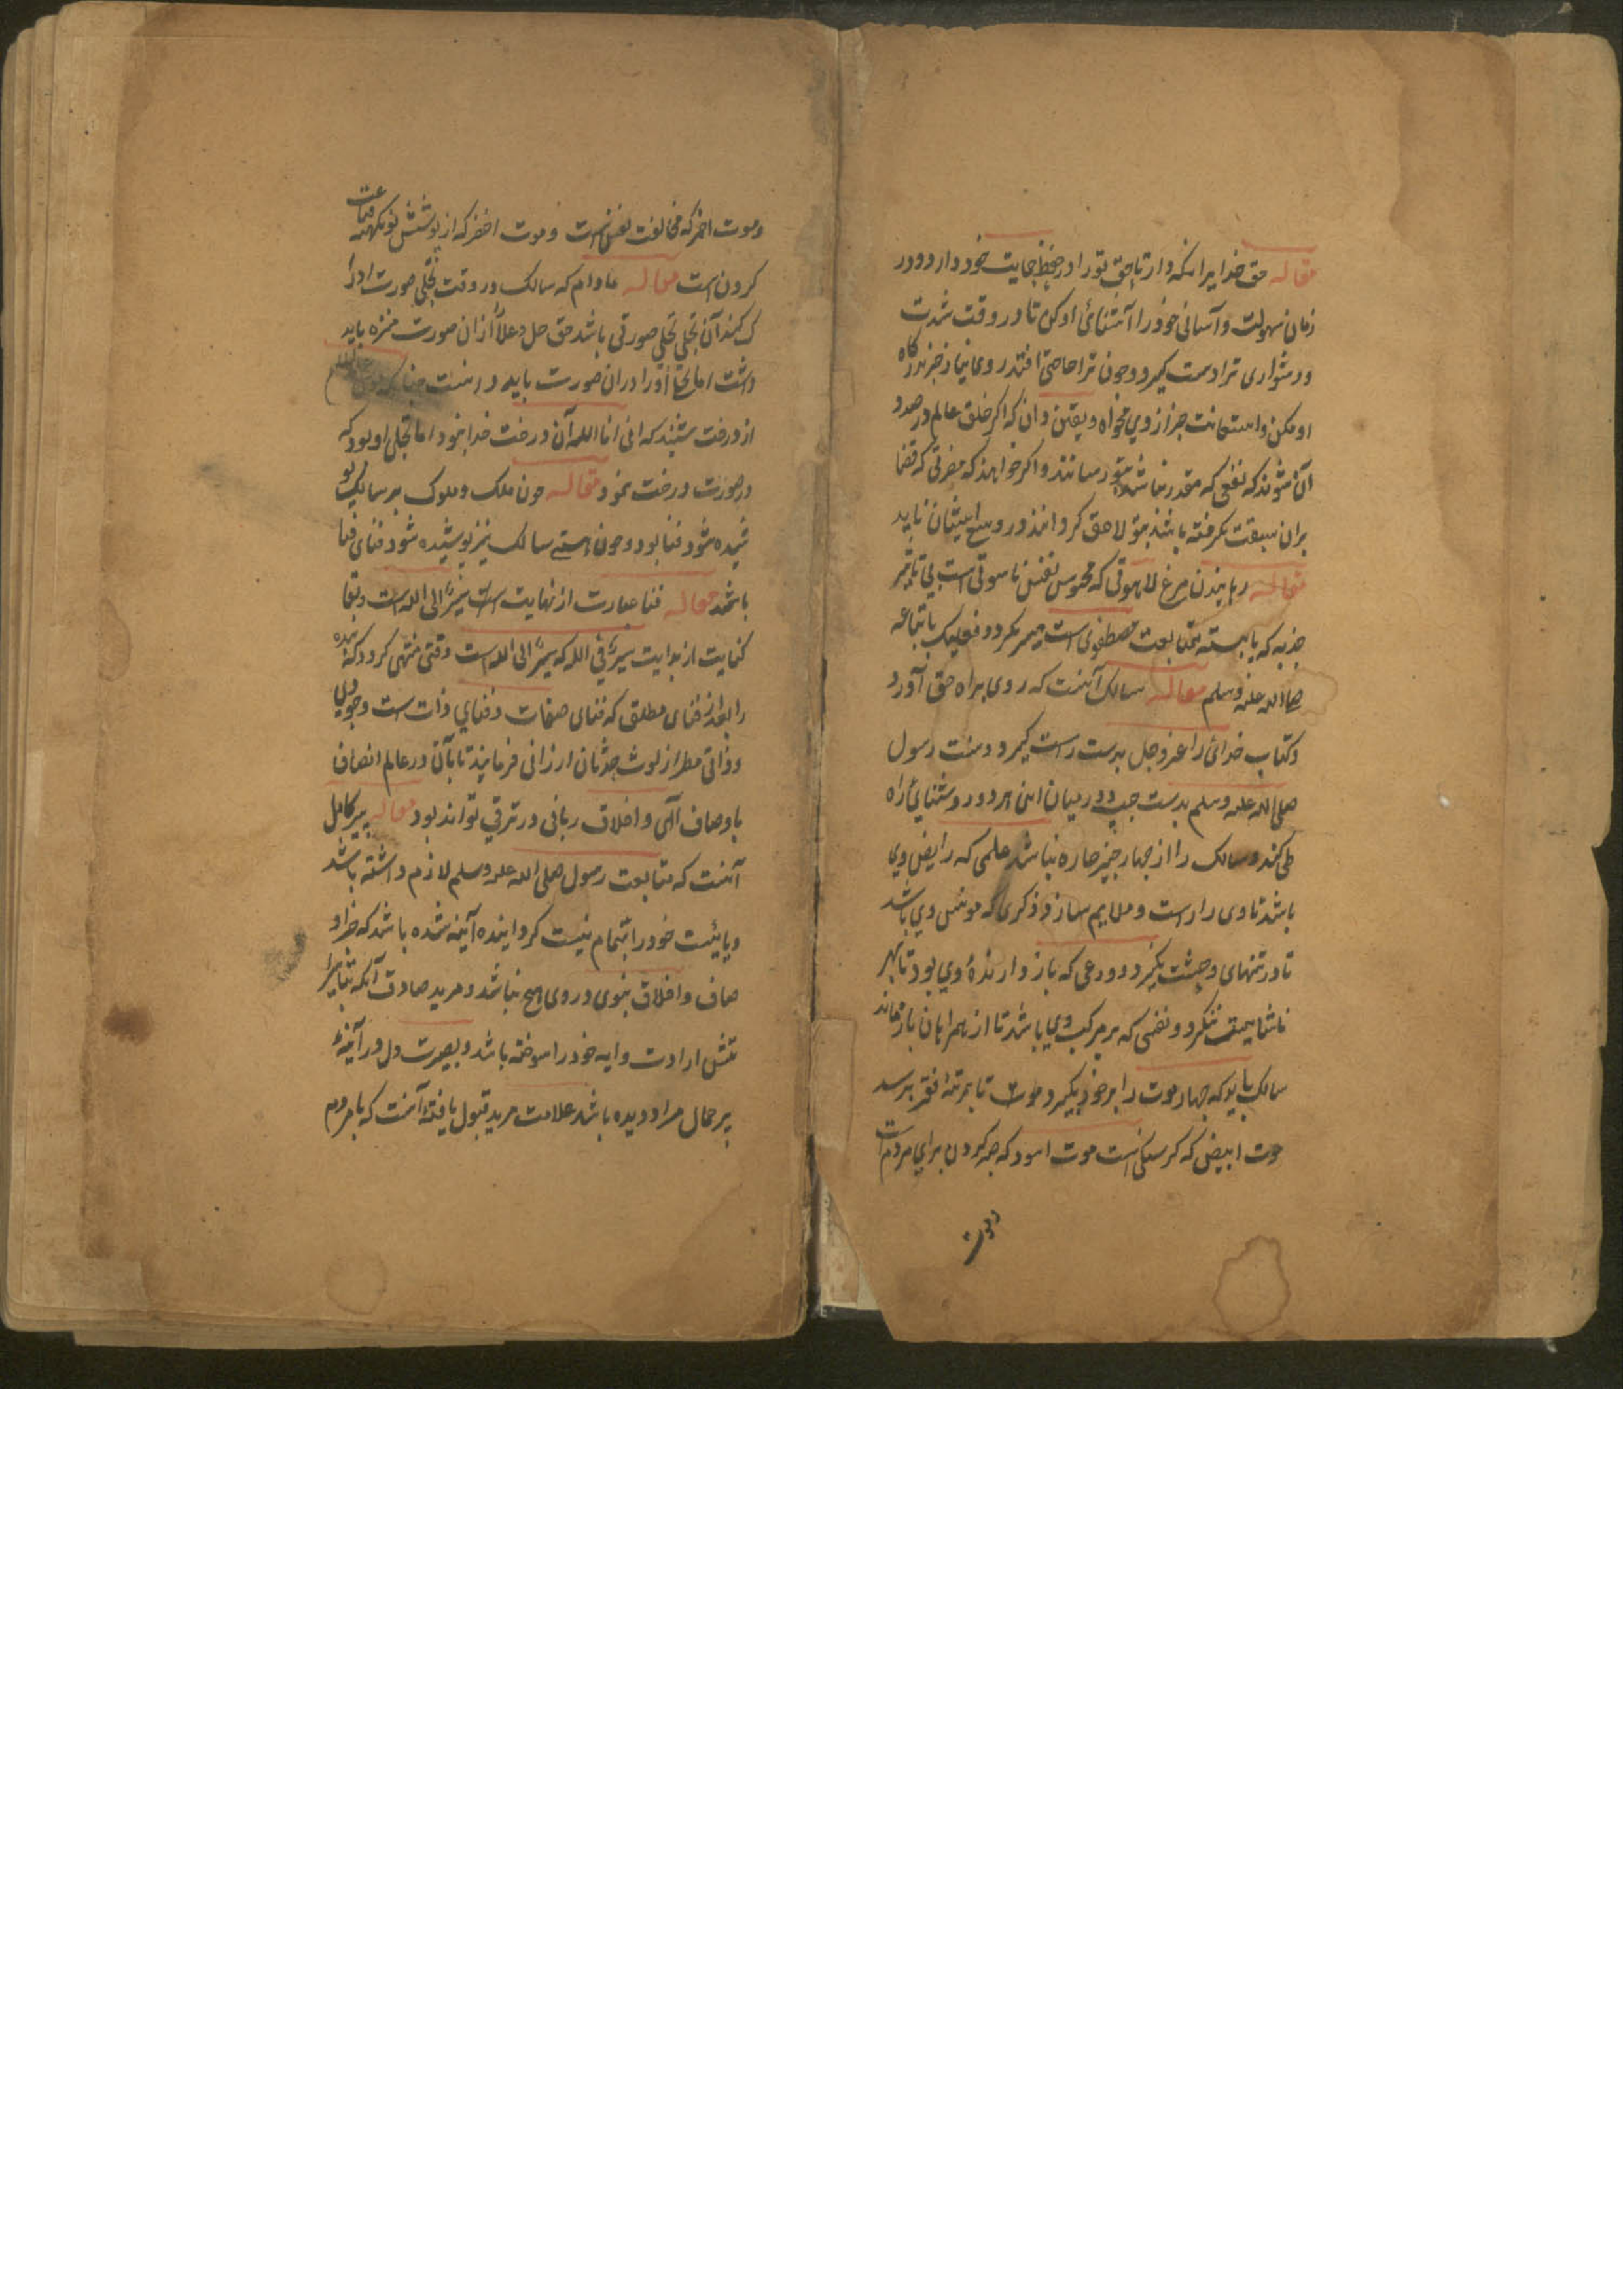 مقاله حق خدایرا نگه دار تا حق تو را در حفظ حمایت خود دارد و در
زمان سهولت و آسانی خود را آشنائ او کن تا در وقت شدت
و دشواری ترا دست گیرد و چون ترا حاجتی افتد روی نیاز جز بدرگاه
او مکن و استعانت جز از وی مخواه و یقین دان که اگر خلق عالم در صدد
آن شوند که نفعی که مقدر نباشد بتو رسانند و اگر خواهند که مضرتی که قضا
بران سبقت نگرفته باشد بتو لاحق گردانند در وسع ایشان ناید
مقاله رهانیدن مرغ لاهوتی که محبوس نفس ناسوتی است بی تاثیر
جذبه که بابسته متابعت مصطفوی است میسر نگردد فعلیک باتباعه
صلی الله علیه وسلم مقاله سالک آنست که روی براه حق آورد
و کتاب خدائ را عز و جل بدست راست گیرد و سنت رسول
صلی الله علیه وسلم بدست چپ و در میان این هر دو روشنایی راه
طی کند و سالک را از چهار چیز چاره نباشد علمی که رایض وی
باشد تا وی را راست و ملایم سازد و ذکری که مونس وی باشد
تا در تنهای وحشت نگیرد و ورعی که باز دارندۀ وی بود تا بهر
ناشایست ننگرد و نفسی که مرکب وی باشد تا از همراهان باز نماند
سالک باید که چهار موت را بر خود بگیرد تا بمرتبۀ فقر برسد
موت ابیض که گرسنگی است موت اسود که صبر کردن برای مردم است
و موت
و موت احمر که مخالفت نفس است و موت اخضر که از پوشش نو بکهنه قناعت
کردن است مقاله مادام که سالک در وقت تجلی صورت ادرا
ک کند آن تجلی تجلی صورتی باشد حق جل و علا را ازان صورت منزه باید
داشت اما تجلی او را دران صورت باید دانست چنانکه موسی
از درخت شنید که انی انا الله آن درخت خدا نبود اما تجلی او بود که
در صورت درخت نمود مقاله چون ملک و ملوک بر سالک پو
شیده شود فنا بود و چون هستی سالک نیز پوشیده شود فنای فنا
باشد مقاله فنا عبارت از نهایت سیر الی الله است و بقا
کنایت از بدایت سیر فی الله که سیر الی الله است وقتی منتهی گردد که بنده
را بعد از فنای مطلق که فنای صفات و فنای ذات است وجودی
و ذاتی مطهر از لوث حدثان ارزانی فرمایند تا بآن در عالم اتصاف
باوصاف الهی و اخلاق ربانی در ترقی تواند بود مقاله پیر کامل
آنست که متابعت رسول صلی الله علیه وسلم لازم داشته باشد
و بایست خود را بتمام نیست گردانیده آئینه شده باشد که جز او
صاف و اخلاق نبوی در وی هیچ نباشد و مرید صادق آنکه بتاثیر
تش ارادت وایه خود را سوخته باشد و بصیرت دل در آئینۀ
پیر جمال مراد دیده باشد علامت مرید قبول یافته آنست که با مردم